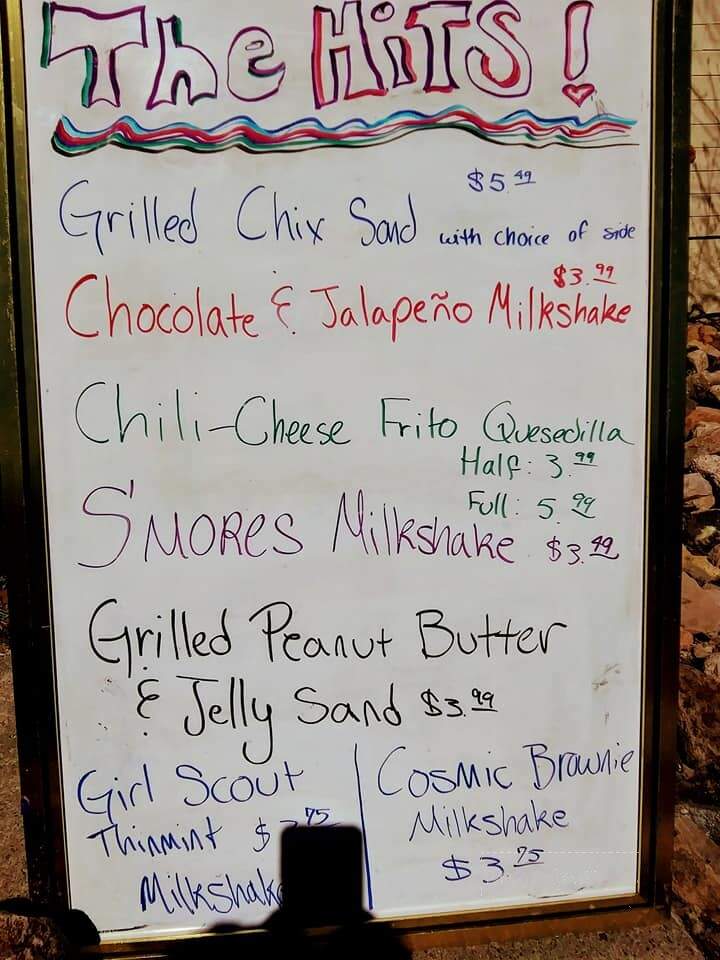 The HiTS!
$5.49
Grilled Chix Sand with choice of side
$3.99
Chocolate & Jalapeño Milkshake
Chili-Cheese Frito Quesedilla
Half: 3.99
Full: 5.99
S'MORES Milkshake $3.49
Grilled Peanut Butter
& Jelly Sand $3.99
Girl Scout
Thinmint $3.75
Milkshake
Cosmic Brownie
Milkshake
$3.75